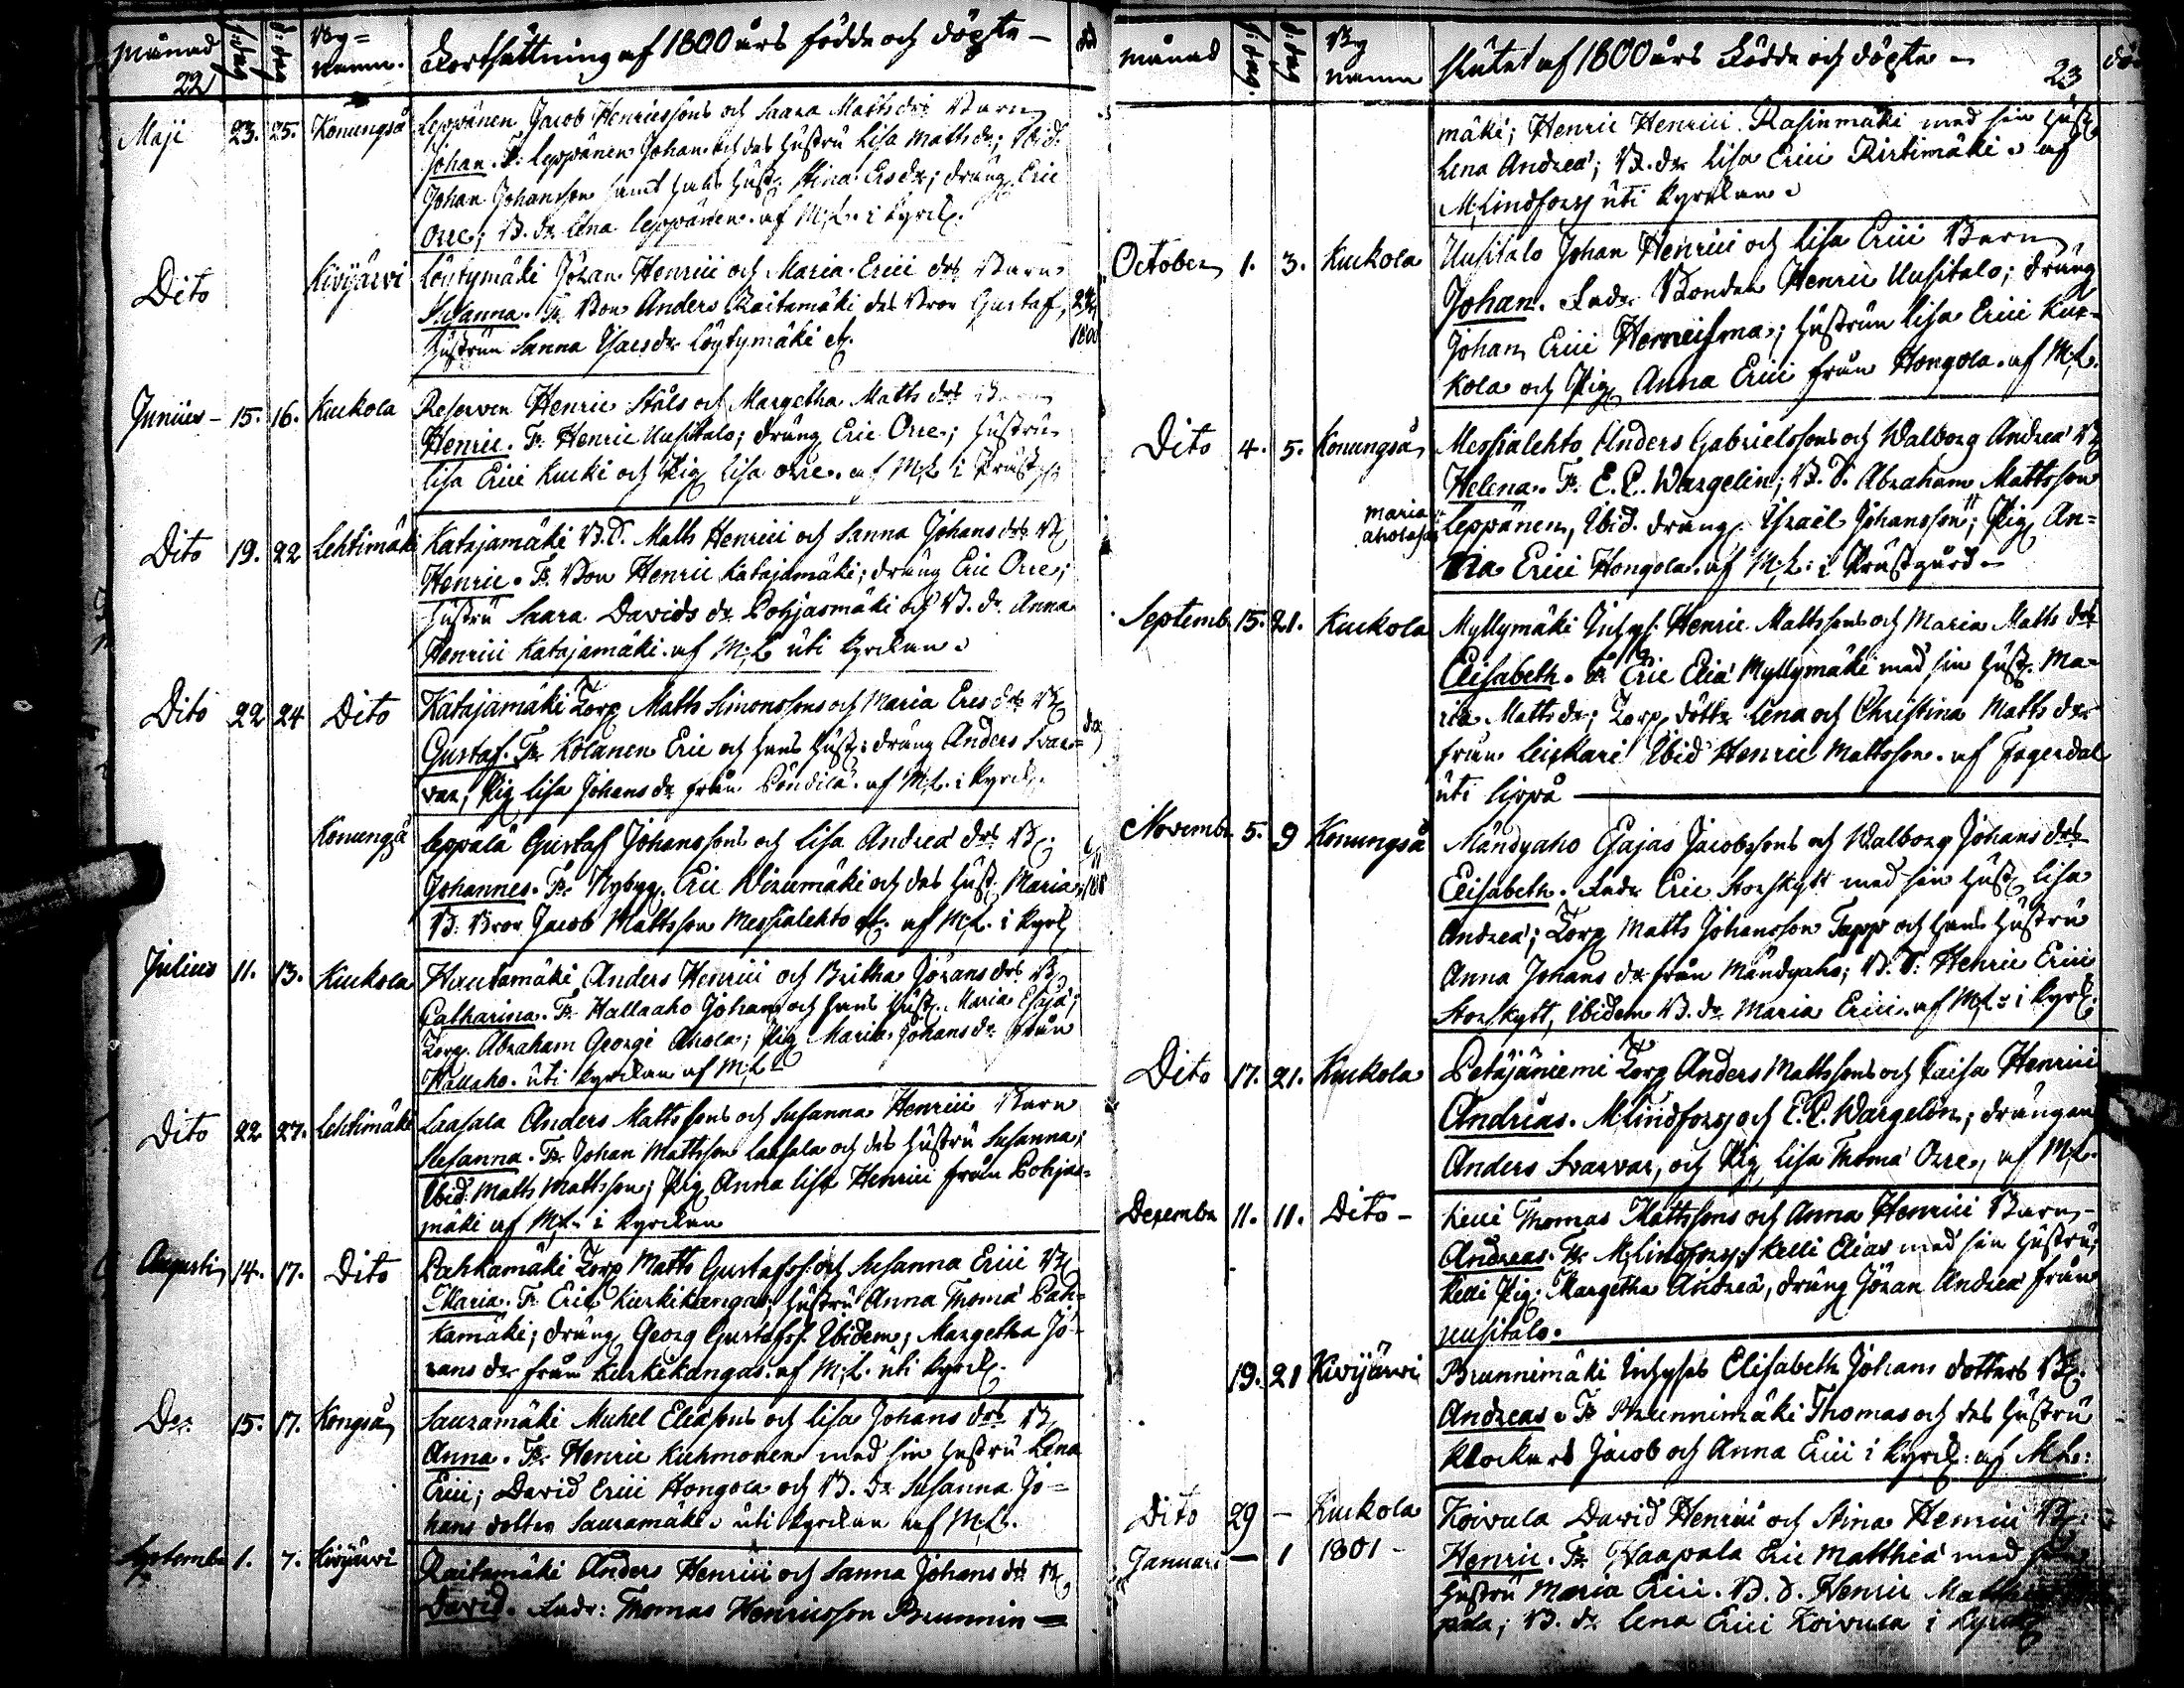 Månad f:dag d:dag By= namn. Fortsättning af 1800 års födde och döpte —
22
Maji 23. 25. Konungså Leppänen Jacob Henricssons och Saara Matts drs Barn
Johan. Fr. Leppänen Johan och des hustru Lisa Matts dr; Ibid.
Johan Johansson samt hans hustr. Stina Ers dr; dräng Eric
Orre; B. dr Lena Leppänen. af M:L. i kyrck.
Dito Kivijärvi Löytymäki Jöran Henrici och Maria Erici drs Barn
Susanna. Fr. Bon Anders Raitamäki des Bror Gustaf,
hustrun Sanna Isacs dr Löytymäki etc.
1800
Junius - 15. 16. Kuckola Reserven Henric Ståls och Margetha Matts drs Barn
Henric. Fr. Henric Uusitalo; dräng Eric Orre; hustru
Lisa Erici Kucki och Pig. Lisa Orre. af M:L i Präst
Dito 19. 22 Lehtimäki Katajamäki B.S. Matts Henrici och Sanna Johans drs B.
Henric. Fr. Bon Henric Katajamäki; dräng Eric Orre;
hustru Saara Davids dr Pohjasmäki och B. dr Anna
Henrici Katajamäki. af M:L uti kyrckan.
Dito 22 24 Dito Katajamäki Torp. Matts Simonssons och Maria Ers drs B.
Gustaf. Fr. Kotanen Eric och hans hust; dräng Anders Svar=
var, Pig. Lisa Johans dr från Pöndilä. af M:L. i kyrck.
Konungså Leppälä Gustaf Johanssons och Lisa Andreæ drs B.
Johannes. Fr. Nybyg. Eric Wirumäki och des hust. Maria,
B. Bror Jacob Mattsson Messialehto etc. af M:L. i kyrck
Julius 11. 13. Kuckola Hautamäki Anders Henrici och Britha Jörans drs B.
Catharina. Fr. Hallaaho Johan och hans hust. Maria Esajæ;
Torp. Abraham Georgi Ahola; Pig. Maria Johans dr från
Hallaho. uti kyrckan af M:L
Dito 22 27. Lehtimäki Laasala Anders Mattssons och Susanna Henrici Barn
Susanna. Fr. Johan Mattsson Laasala och des hustru Susanna;
Ibid. Matts Mattsson; Pig. Anna Lisa Henrici från Pohjas=
mäki af M:L i kyrckan
Augusti 14. 17. Dito Pahkamäki Torp. Matts Gustafss: och Susanna Erici B.
Maria. Fr. Eric Kurkikangas; hustru Anna Thomæ Pah=
kamäki; dräng Georg Gustafss. Ibidem; Margetha Jö=
rans dr från Kurkikangas. af M:L. uti kyrck.
Do. 15. 17. Kongså Sauramäki Mickel Eliæsons och Lisa Johans drs B.
Anna. Fr. Henric Kuhmonen med sin hustru Lena
Erici; David Erici Hongola och B. dr Susanna Jo=
hans dotter Sauramäki. uti kyrckan af M:L.
Septemb 1. 7. Kivijärvi Raitamäki Anders Henrici och Sanna Johans drs B.
David. Fadr: Thomas Henricsson Brunnin=
månad f:dag. d:dag By namn slutet af 1800 års Födde och döpte
23
mäki; Henric Henrici Rasinmäki med sin hust.
Lena Andreæ; B. dr Lisa Erici Ristimäki. af
M:Lindforss uti kyrckan.
October 1. 3. Kuckola Uusitalo Johan Henrici och Lisa Erici Barn
Johan. Fadr. Bonden Henric Uusitalo; dräng
Johan Erici Henreisma; hustrun Lisa Erici Kuc=
kola och Pig. Anna Erici från Hongola. af M:L.
Dito 4. 5. Konungså Messialehto Anders Gabrielssons och Walborg Andreæ B.
Helena. Fr. E. P. Wargelin; B. S. Abraham Mattsson
Maria
Leppänen, Ibid. dräng Israël Johansson; Pig. An=
na Erici Hongola. af M:L. i Prästgård.
Septemb 15. 21. Kuckola Myllymäki Inhys. Henric Mattssons och Maria Matts drs
Elisabeth. Fr. Eric Eliæ Myllymäki med sin hust. Ma=
ria Matts dr; Torp. dötr. Lena och Christina Matts dr
från Leiskari Ibid. Henric Mattsson. af Fogerdal
uti Lippo
Novemb. 5. 9 Konungså Mändyaho Esajas Jacobssons och Walborg Johans drs
Elisabeth. Fadr. Eric Storskytt med sin hust. Lisa
Andreæ; Torp. Matts Johansson Tapp och hans hustru
Anna Johans dr från Mändyaho; B. S. Henric Erici
Storskytt, Ibidem B. dr Maria Erici. af M:L. i kyrck.
Dito 17. 21. Kuckola Petäjäniemi Torp. Anders Mattssons och Caisa Henrici
Andreas. M:Lindforss och E. P. Wargelin; drängen
Anders Svarvar, och Pig. Lisa Thomæ Orre, af M:L.
Decembr 11. 11. Dito - Kelli Thomas Mattssons och Anna Henrici Barn
Andreas. Fr. M:Lindforss; Kelli Elias med sin hustru;
Kelli Pig. Margetha Andreæ, dräng Jöran Andreæ från
Uusitalo.
19. 21 Kivijärvi Brunnimäki Inhyses Elisabeth Johans dotters B.
Andreas. Fr. Brunnimäki Thomas och des hustru
Klockars Jacob och Anna Erici i kyrck. af M:L:
Dito 29 — Kuckola Koivula David Henrici och Stina Henrici B.
Januari — 1 1801 - Henric. Fr. Haapala Eric Matthiæ med sin
hustru Maria Erici. B. d. Henric
pala; B. dr Lena Erici Koivula i kyrck